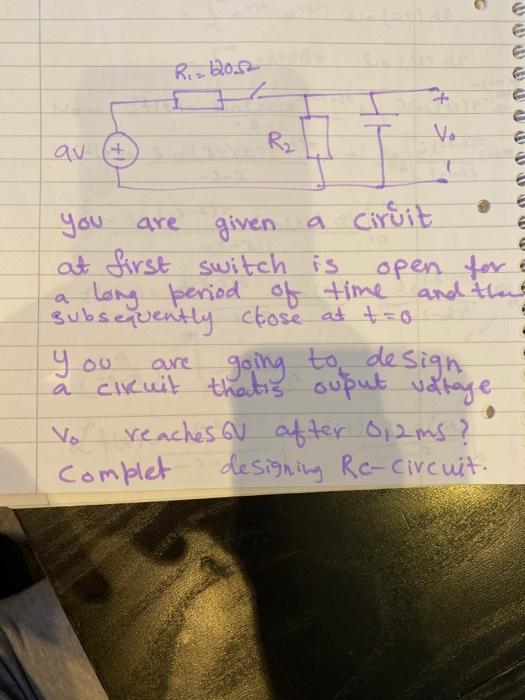 R₁ = 120Ω
+
9V
R₂
Vo
you are given a circuit
at first switch is open for
a long period of time and then
subsequently close at t=0
you are going to design
a circuit thatis ouput voltage
Vo reaches 6V after 0,2ms?
Complet designing Rc-circuit.